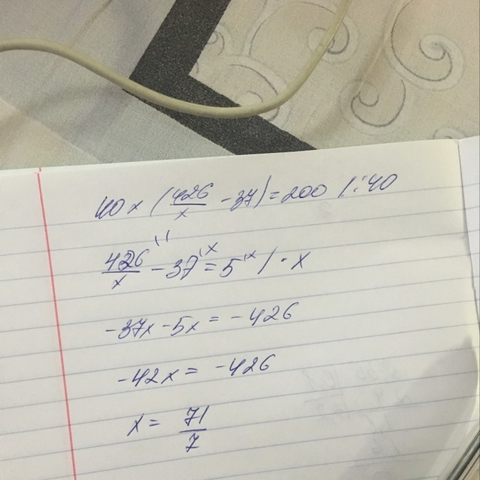 40 × (426/x - 37) = 200 | : 40
426/x \1 - 37 \x = 5 \x | · x
-37x - 5x = -426
-42x = -426
x = 71/7